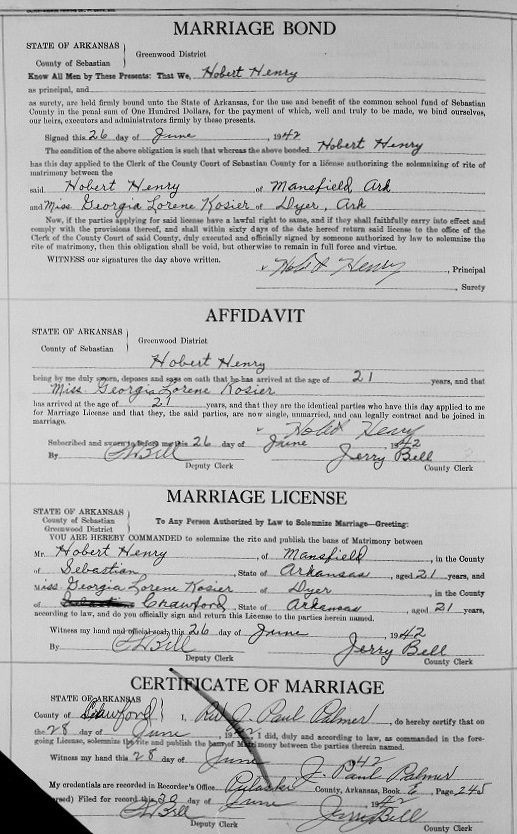 MARRIAGE BOND
STATE OF ARKANSAS
Greenwood District
County of Sebastian
Know All Men by These Presents: That We, Hobert Henry
as principal, and
as surety, are held firmly bound unto the State of Arkansas, for the use and benefit of the common school fund of Sebastian
County in the penal sum of One Hundred Dollars, for the payment of which, well and truly to be made, we bind ourselves,
our heirs, executors and administrators firmly by these presents.
Signed this 26 day of June, 1942
The condition of the above obligation is such that whereas the above bonded Hobert Henry
has this day applied to the Clerk of the County Court of Sebastian County for a license authorizing the solemnizing of rite of
matrimony between the
said Hobert Henry of Mansfield, Ark
and Miss Georgia Lorene Kosier of Dyer, Ark
Now, if the parties applying for said license have a lawful right to same, and if they shall faithfully carry into effect and
comply with the provisions thereof, and shall within sixty days of the date hereof return said license to the office of the
Clerk of the County Court of said County, duly executed and officially signed by someone authorized by law to solemnize the
rite of matrimony, then this obligation shall be void, but otherwise to remain in full force and virtue.
WITNESS our signatures the day above written.
Hobert Henry, Principal
, Surety
AFFIDAVIT
STATE OF ARKANSAS
Greenwood District
County of Sebastian
Hobert Henry
being by me duly sworn, deposes and says on oath that he has arrived at the age of 21 years, and that
Miss Georgia Lorene Kosier
has arrived at the age of 21 years, and that they are the identical parties who have this day applied to me
for Marriage License and that they, the said parties, are now single, unmarried, and can legally contract and be joined in
marriage.
Hobert Henry
Subscribed and sworn to before me this 26 day of June 1942
By Bill Jerry Bell
Deputy Clerk County Clerk
MARRIAGE LICENSE
STATE OF ARKANSAS
County of Sebastian
Greenwood District
To Any Person Authorized by Law to Solemnize Marriage—Greeting:
YOU ARE HEREBY COMMANDED to solemnize the rite and publish the bans of Matrimony between
Mr. Hobert Henry, of Mansfield, in the County
of Sebastian, State of Arkansas, aged 21 years, and
Miss Georgia Lorene Kosier of Dyer, in the County
of Crawford, State of Arkansas, aged 21 years,
according to law, and do you officially sign and return this License to the parties herein named.
Witness my hand and official seal, this 26 day of June 1942
By Bill Jerry Bell
Deputy Clerk County Clerk
CERTIFICATE OF MARRIAGE
STATE OF ARKANSAS
County of Crawford I, Rev. J. Paul Palmer, do hereby certify that on
the 28 day of June, 1942 I did, duly and according to law, as commanded in the fore-
going License, solemnize the rite and publish the bans of Matrimony between the parties therein named.
Witness my hand this 28 day of June 1942
J. Paul Palmer
My credentials are recorded in Recorder's Office Pulaski County, Arkansas, Book 6, Page 245
Filed for record this 30 day of June 1942
Bill Jerry Bell
Deputy Clerk County Clerk